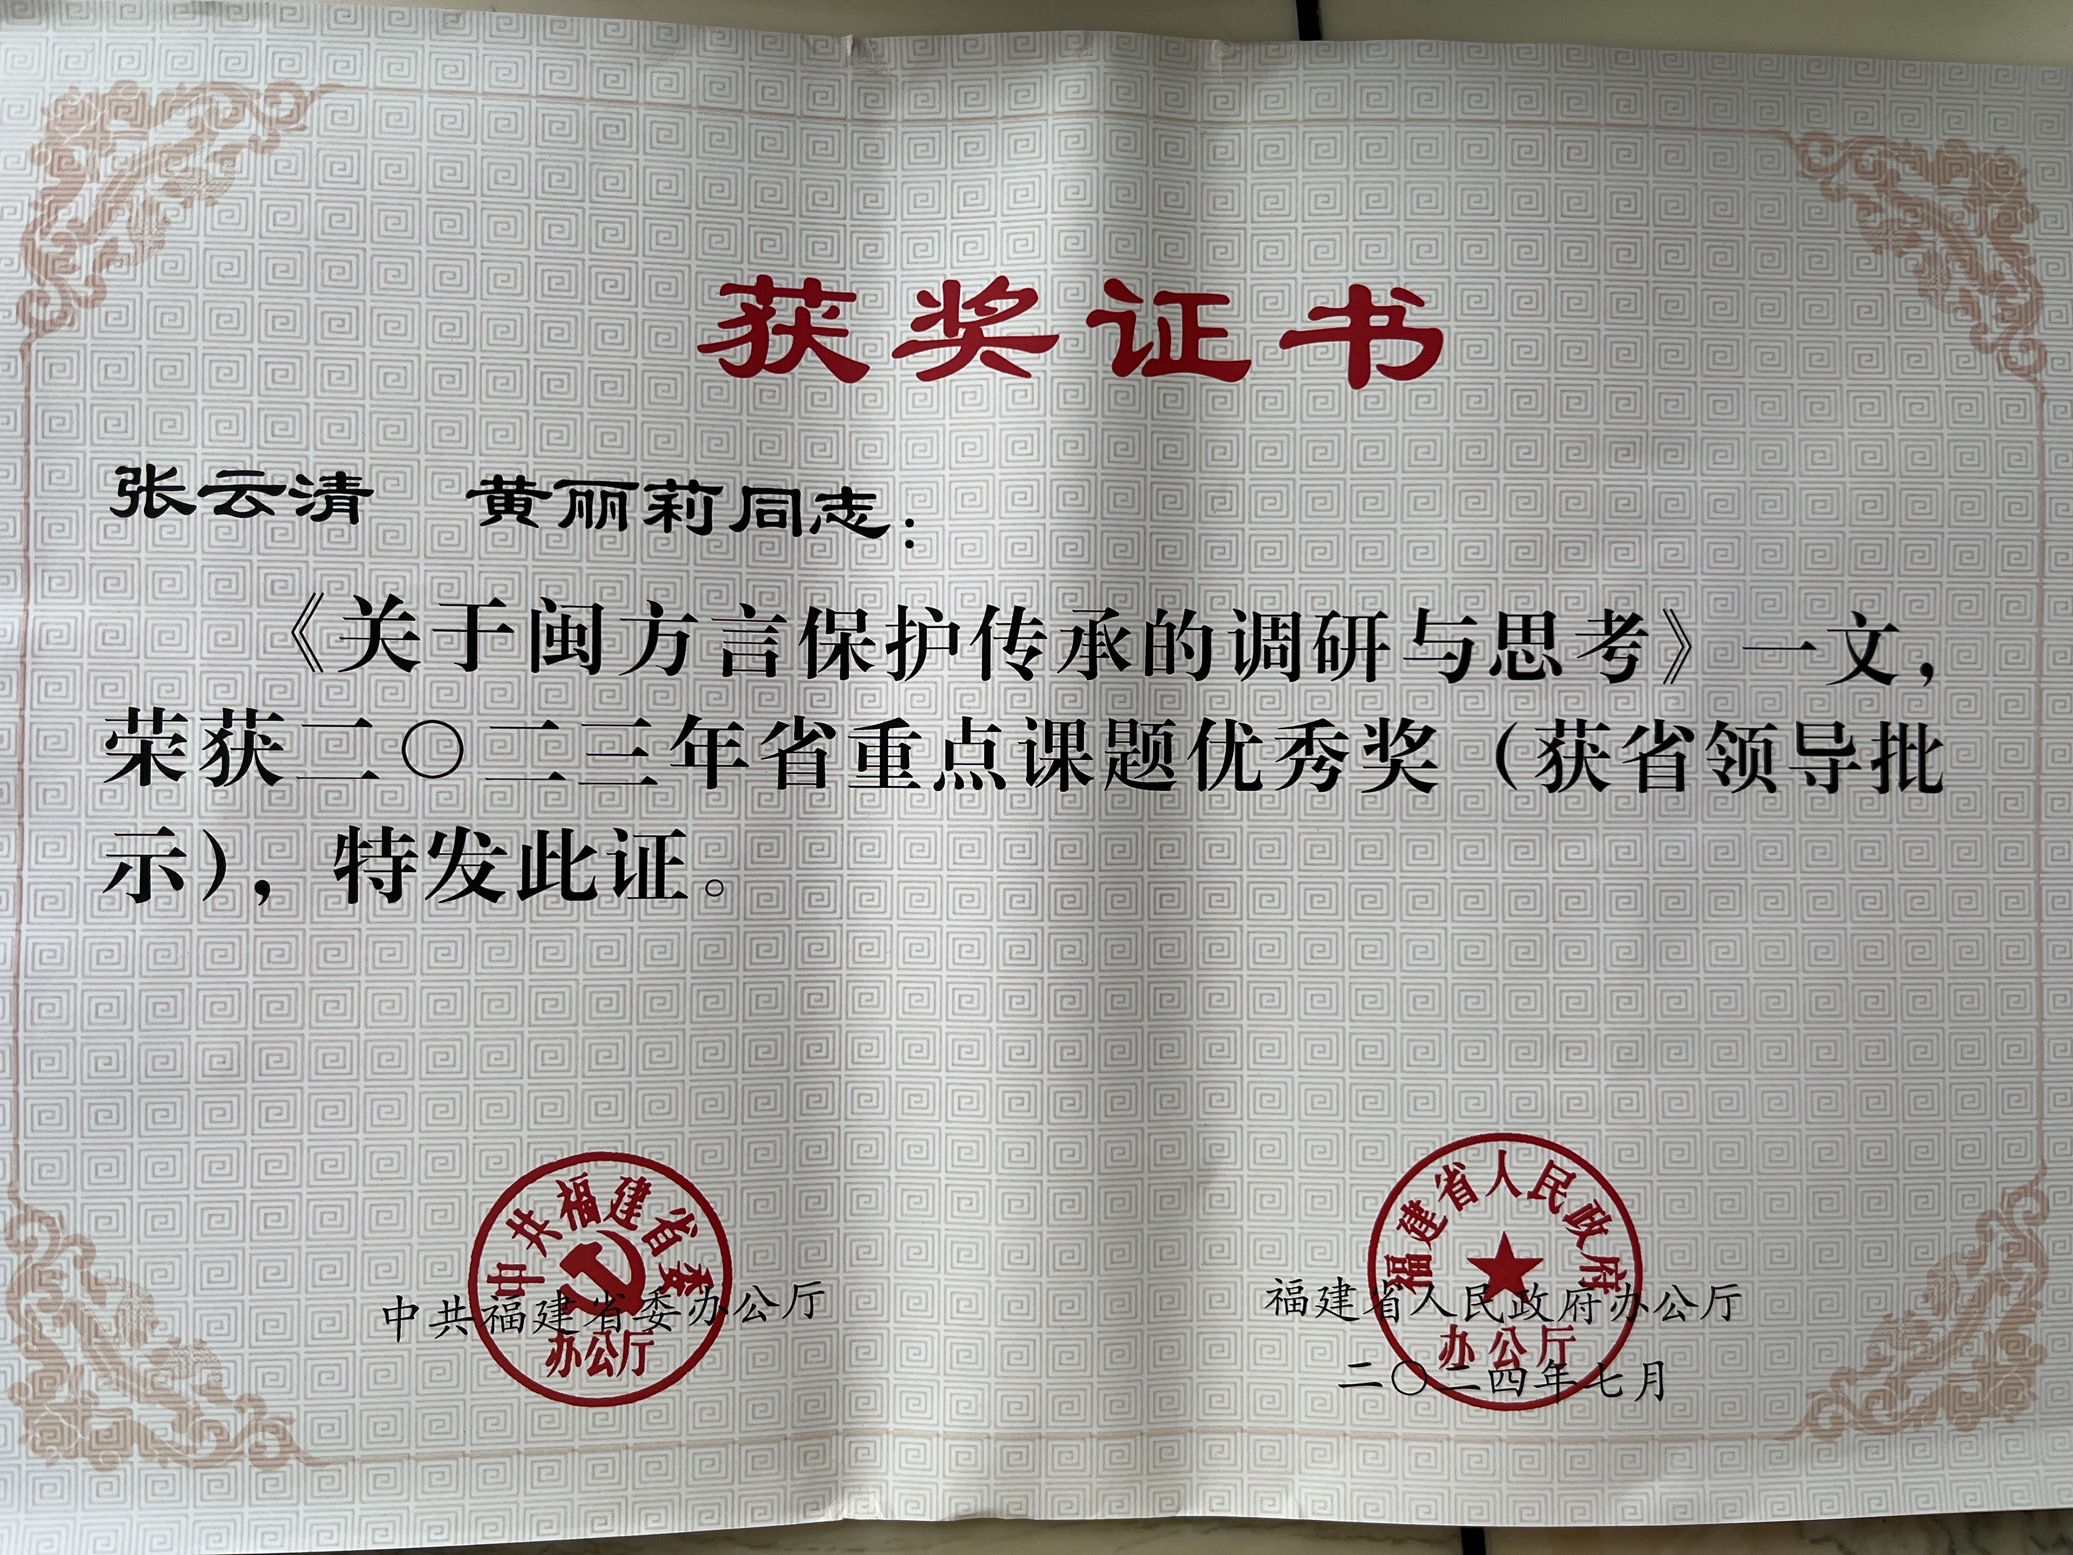 获奖证书
张云清 黄丽莉同志：
《关于闽方言保护传承的调研与思考》一文，
荣获二〇二三年省重点课题优秀奖（获省领导批
示），特发此证。
中共福建省委
办公厅
中共福建省委办公厅
福建省人民政府
办公厅
福建省人民政府办公厅
二〇二四年七月